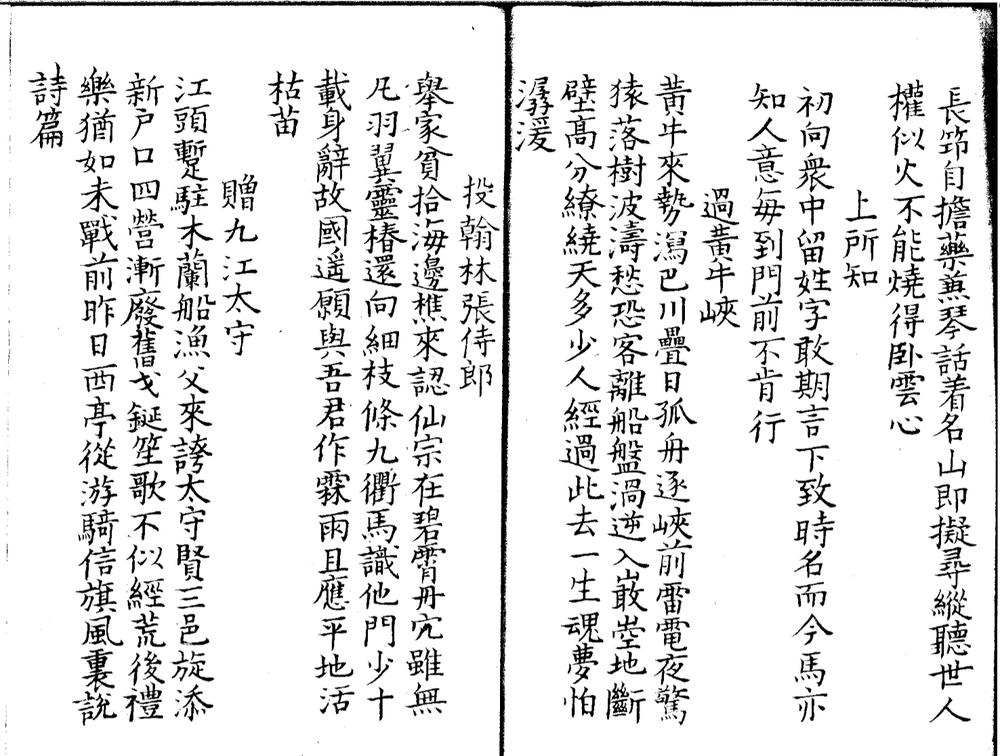 長笻自擔藥蕪琴話着名山即擬尋縱聽世人
權似火不能燒得卧雲心
上所知
初向衆中留姓字敢期言下致時名而今馬亦
知人意每到門前不肯行
過黃牛峽
黃牛來勢瀉巴川疊日孤舟逐峽前雷電夜驚
猿落樹波濤愁恐客離船盤渦逆入嵌空地斷
壁高分繚繞天多少人經過此去一生魂夢怕
潺湲
投翰林張侍郎
舉家貧拾海邊樵來認仙宗在碧霄丹穴雖無
凡羽翼靈椿還向細枝條九衢馬識他門少十
載身辭故國遥願與吾君作霖雨且應平地活
枯苗
贈九江太守
江頭蹔駐木蘭船漁父來誇太守賢三邑旋添
新户口四營漸廢舊戈鋋笙歌不似經荒後禮
樂猶如未戰前昨日西亭從游騎信旗風裏說
詩篇